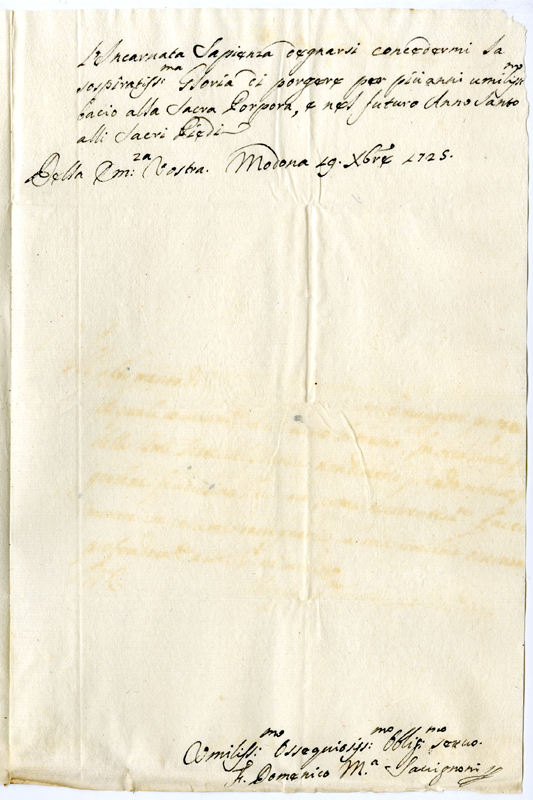 l'Incarnata Sapienza degnarsi concedermi la
sospiratiss:ma Gloria di porgere per più anni umiliss:mo
bacio alla Sacra Porpora, e nel futuro Anno Santo
alli Sacri Piedi
Della Em:za Vostra. Modona 19. Xbre 1725.
Umiliss:mo Ossequiosiss:mo Obblig:mo Servo.
F. Domenico M.a Savignoni